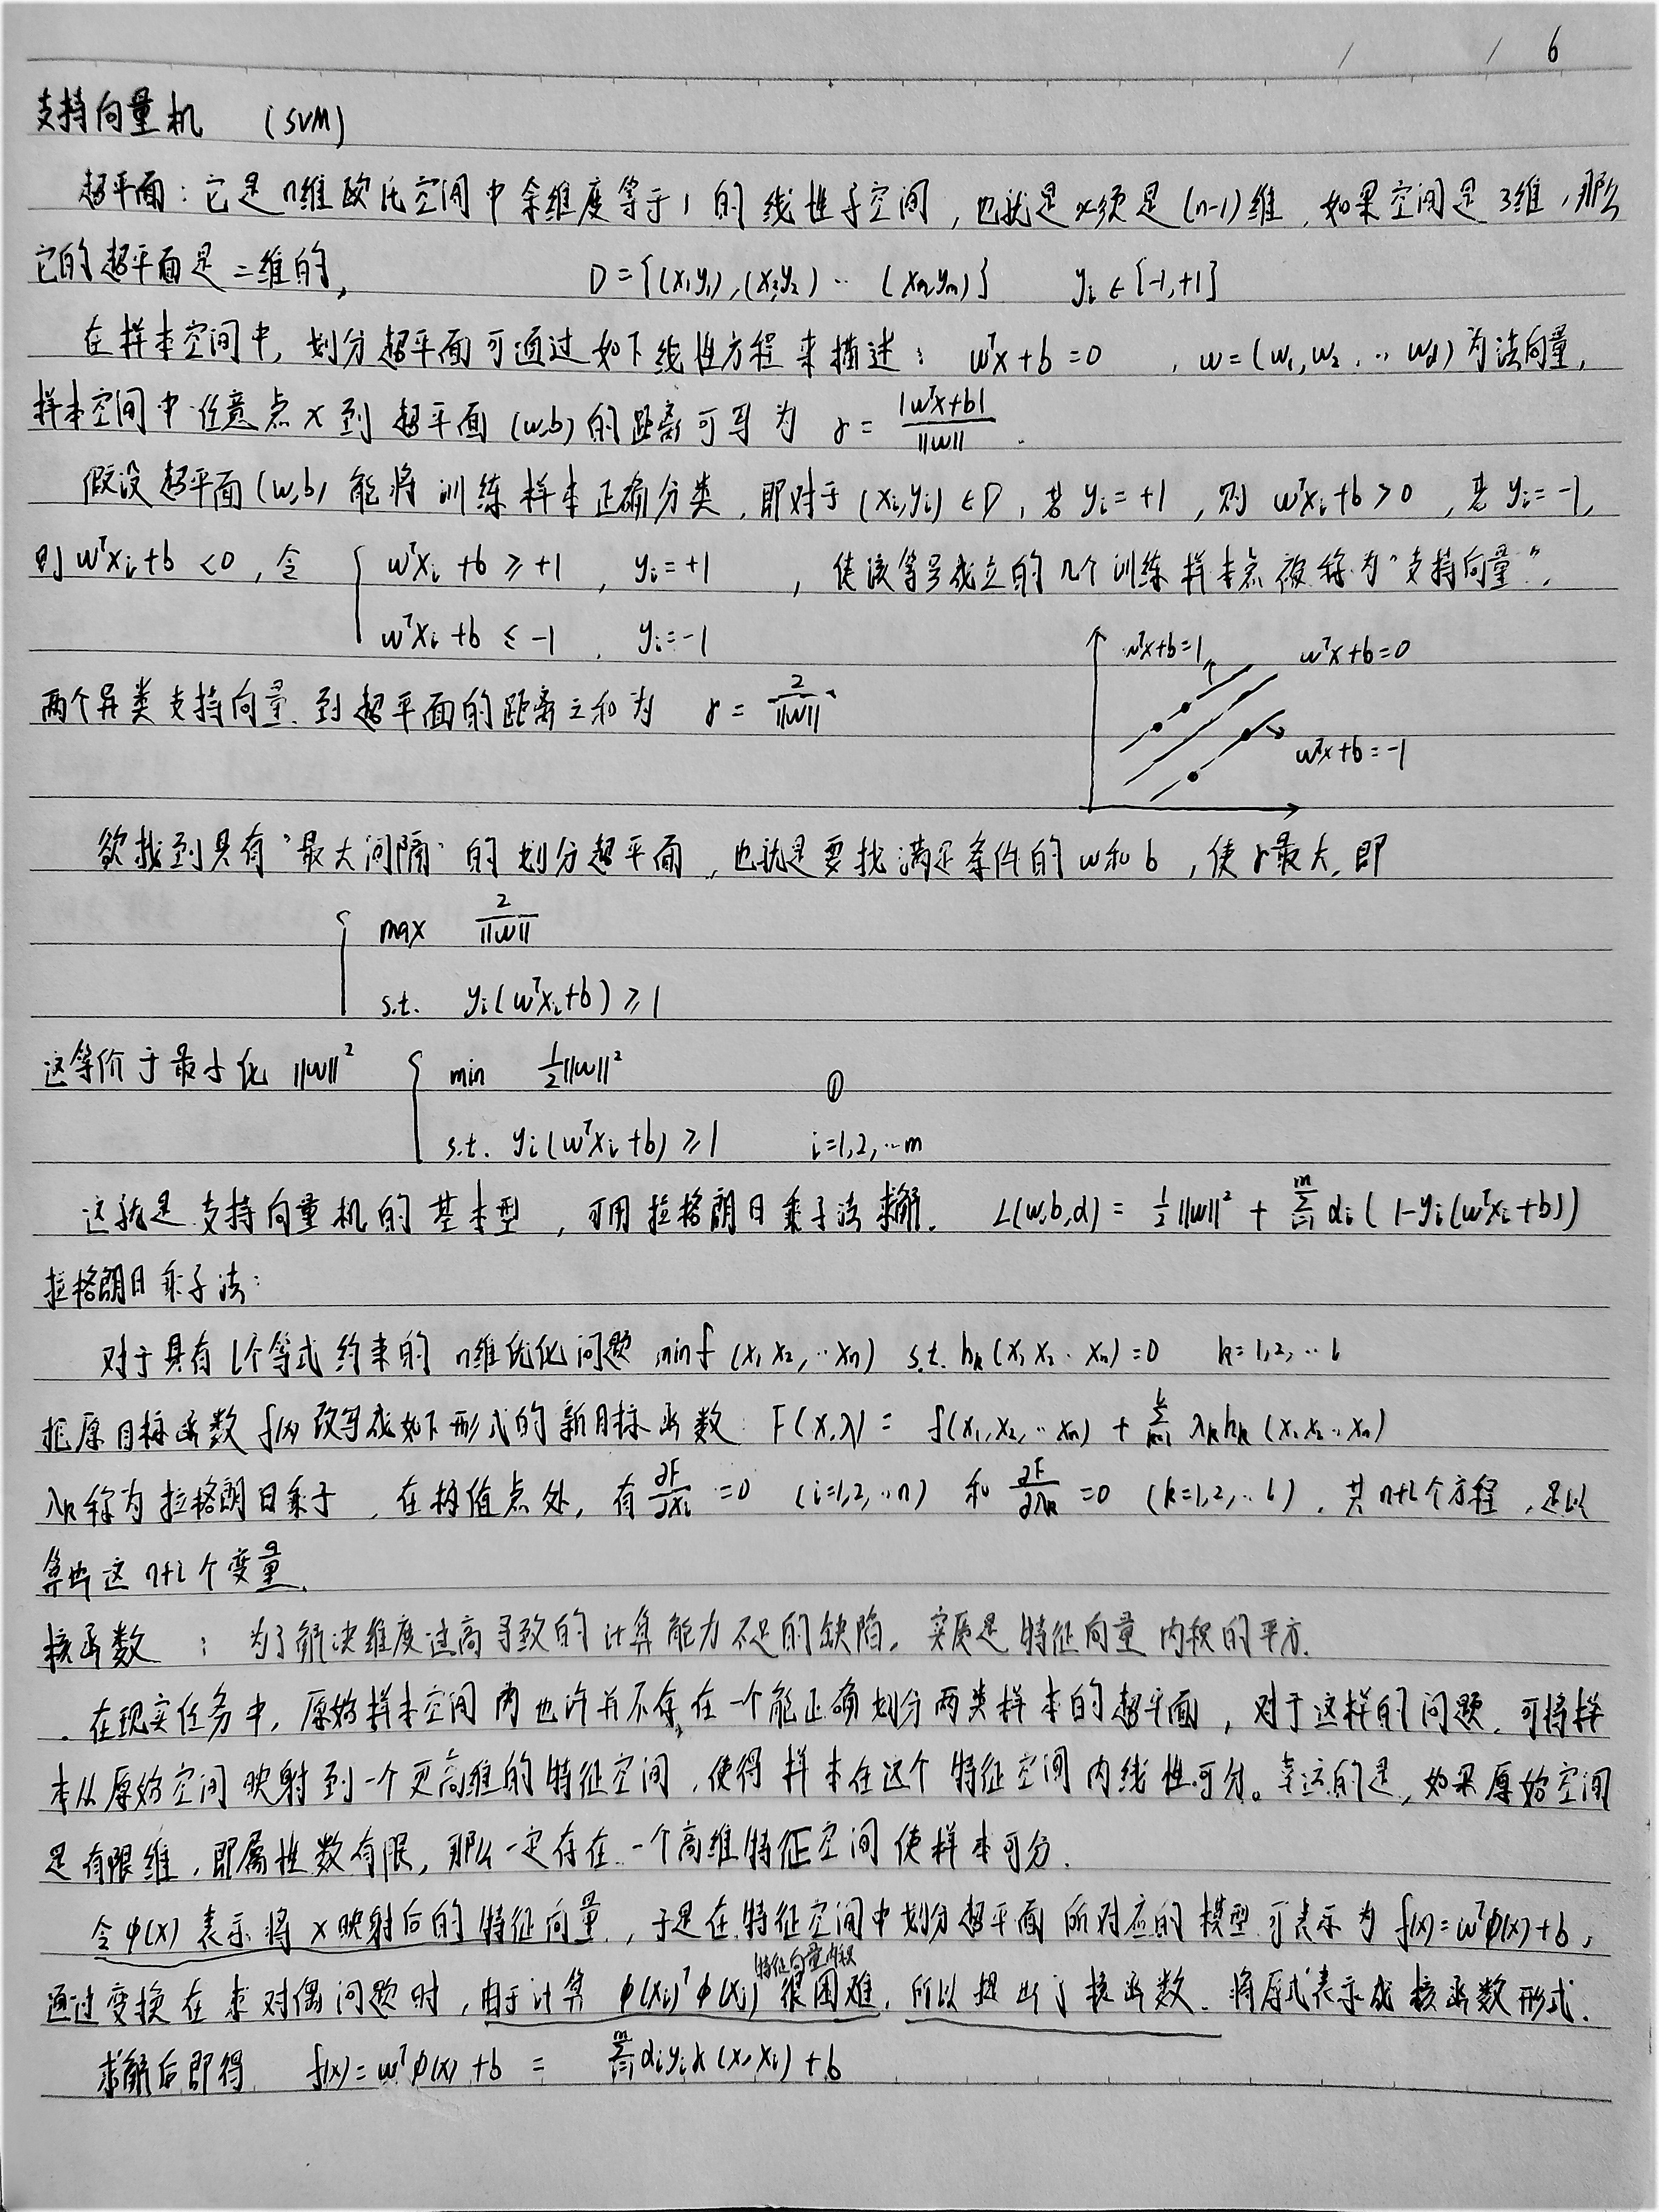 6
支持向量机 (SVM)
超平面：它是n维欧氏空间中余维度等于1的线性子空间，也就是必须是(n-1)维，如果空间是3维，那么
它的超平面是二维的， D={(x₁y₁),(x₂y₂)‥(xₘ,yₘ)} yᵢ∈{-1,+1}
在样本空间中，划分超平面可通过如下线性方程来描述：wᵀx+b=0 ，w=(w₁,w₂,‥w_d)为法向量，
样本空间中任意点x到超平面(w,b)的距离可写为 r = |wᵀx+b| / ||w|| .
假设超平面(w,b)能将训练样本正确分类，即对于(xᵢ,yᵢ)∈D，若yᵢ=+1，则 wᵀxᵢ+b>0，若yᵢ=-1，
则wᵀxᵢ+b<0，令 { wᵀxᵢ+b≥+1，yᵢ=+1 ，使该等号成立的几个训练样本点被称为“支持向量”，
wᵀxᵢ+b≤-1，yᵢ=-1
wᵀx+b=1 wᵀx+b=0
两个异类支持向量到超平面的距离之和为 r = 2/||w||
wᵀx+b=-1
欲找到具有“最大间隔”的划分超平面，也就是要找满足条件的w和b，使r最大，即
{ max 2/||w||
s.t. yᵢ(wᵀxᵢ+b)≥1
这等价于最小化 ||w||² { min ½||w||² ①
s.t. yᵢ(wᵀxᵢ+b)≥1 i=1,2,‥m
这就是支持向量机的基本型，可用拉格朗日乘子法求解. L(w,b,α) = ½||w||² + Σᵢ₌₁ᵐ αᵢ(1-yᵢ(wᵀxᵢ+b))
拉格朗日乘子法：
对于具有l个等式约束的n维优化问题 min f(x₁x₂,‥xₙ) s.t. hₖ(x₁x₂‥xₙ)=0 k=1,2,‥l
把原目标函数f(x)改写成如下形式的新目标函数：F(x,λ) = f(x₁,x₂,‥xₙ) + Σₖ₌₁ˡ λₖhₖ(x₁x₂‥xₙ)
λₖ称为拉格朗日乘子，在极值点处，有 ∂F/∂xᵢ=0 (i=1,2,‥n) 和 ∂F/∂λₖ=0 (k=1,2,‥l)，共n+l个方程，足以
算出这n+l个变量.
核函数：为了解决维度过高导致的计算能力不足的缺陷。实质是特征向量内积的平方.
在现实任务中，原始样本空间内也许并不存在一个能正确划分两类样本的超平面，对于这样的问题，可将样
本从原始空间映射到一个更高维的特征空间，使得样本在这个特征空间内线性可分。幸运的是，如果原始空间
是有限维，即属性数有限，那么一定存在一个高维特征空间使样本可分.
令φ(x)表示将x映射后的特征向量，于是在特征空间中划分超平面所对应的模型可表示为 f(x)=wᵀφ(x)+b，
特征向量内积
通过变换在求对偶问题时，由于计算 φ(xᵢ)ᵀφ(xⱼ) 很困难，所以提出了核函数. 将原式表示成核函数形式.
求解后即得 f(x)=wᵀφ(x)+b = Σᵢ₌₁ᵐ αᵢyᵢκ(x,xᵢ)+b